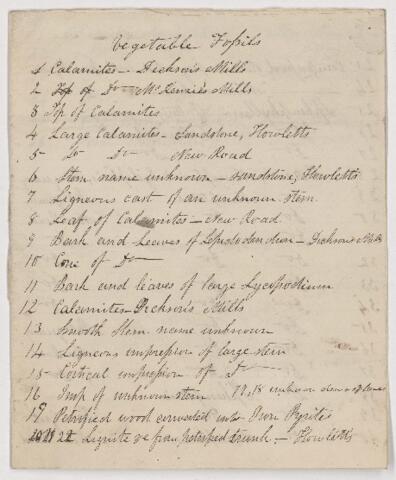 Vegetable Fossils
1 Calamites - Dickson's Mills
2 Tip of Do - McKenzie's Mills
3 Tip of Calamites
4 Large Calamites - Sandstone, Howletts
5 Do Do New Road
6 Stem name unknown - sandstone, Howletts
7 Ligneous cast of an unknown stem
8 Leaf of Calamites - New Road
9 Bark and Leaves of Lepidodendron - Dickson's Mills
10 Cone of Do
11 Bark and leaves of large Lycopodium
12 Calamites Dickson's Mills
13 Smooth Stem name unknown
14 Ligneous impression of large stem
15 Cortical impression of Do
16 Imp of unknown stem 17, 18 unknown stem
19 Petrified wood converted into Iron Pyrites
20 21 22 Lignite from petrified trunk - Howletts